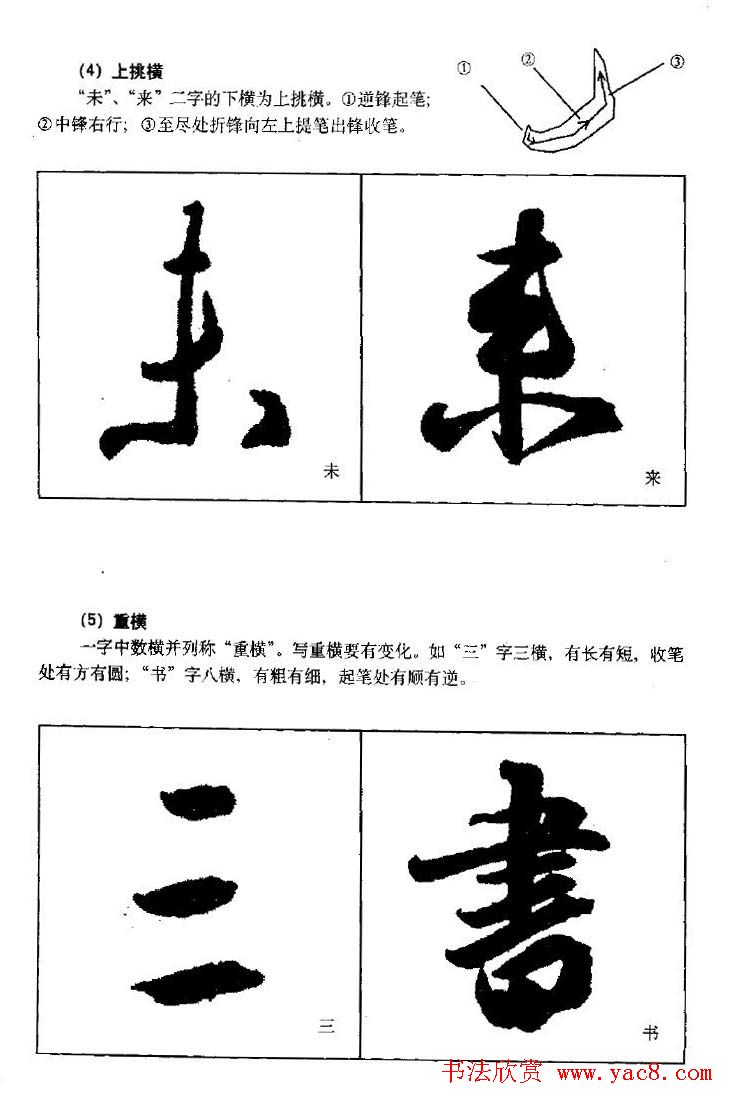 (4) 上挑横
“未”、“来”二字的下横为上挑横。①逆锋起笔;
②中锋右行; ③至尽处折锋向左上提笔出锋收笔。
① ② ③
未 来
未 来
(5) 重横
一字中数横并列称“重横”。写重横要有变化。如“三”字三横, 有长有短, 收笔
处有方有圆; “书”字八横, 有粗有细, 起笔处有顺有逆。
三 書
三 书
书法欣赏 www.yac8.com